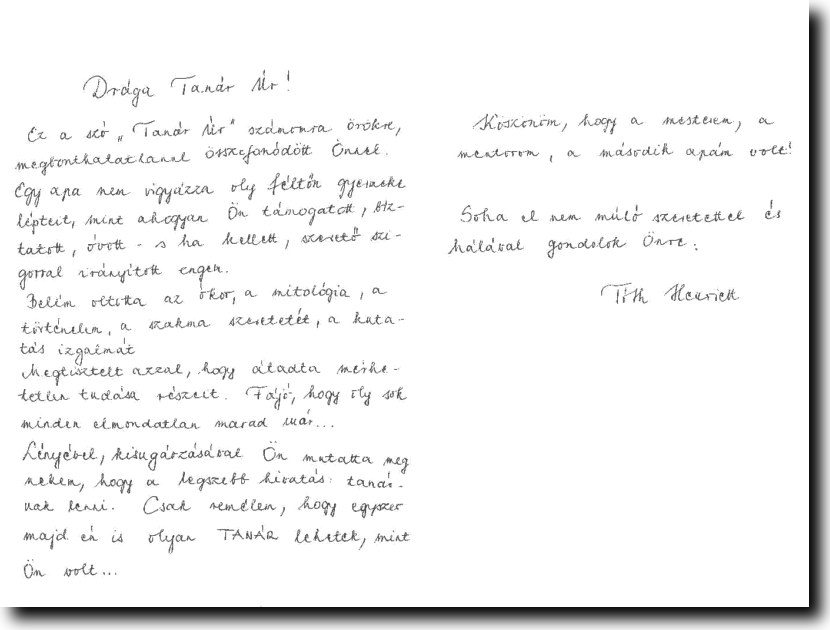 Drága Tanár Úr!
Ez a szó „Tanár Úr" számomra örökre,
megbonthatatlanul összefonódött Önnel.
Egy apa nem vigyázza oly féltőn gyermeke
lépteit, mint ahogyan Ön támogatott, biz-
tatott, óvott - s ha kellett, szerető szi-
gorral irányított engem.
Belém oltotta az ókor, a mitológia, a
történelem, a szakma szeretetét, a kuta-
tás izgalmát
Megtisztelt azzal, hogy átadta mérhe-
tetlen tudása részeit. Fájó, hogy oly sok
minden elmondatlan marad már...
Lényével, kisugárzásával Ön mutatta meg
nekem, hogy a legszebb hivatás: tanár-
nak lenni. Csak remélem, hogy egyszer
majd én is olyan TANÁR lehetek, mint
Ön volt...
Köszönöm, hogy a mesterem, a
mentorom, a második apám volt!
Soha el nem múló szeretettel és
hálával gondolok Önre:
Tóth Henriett